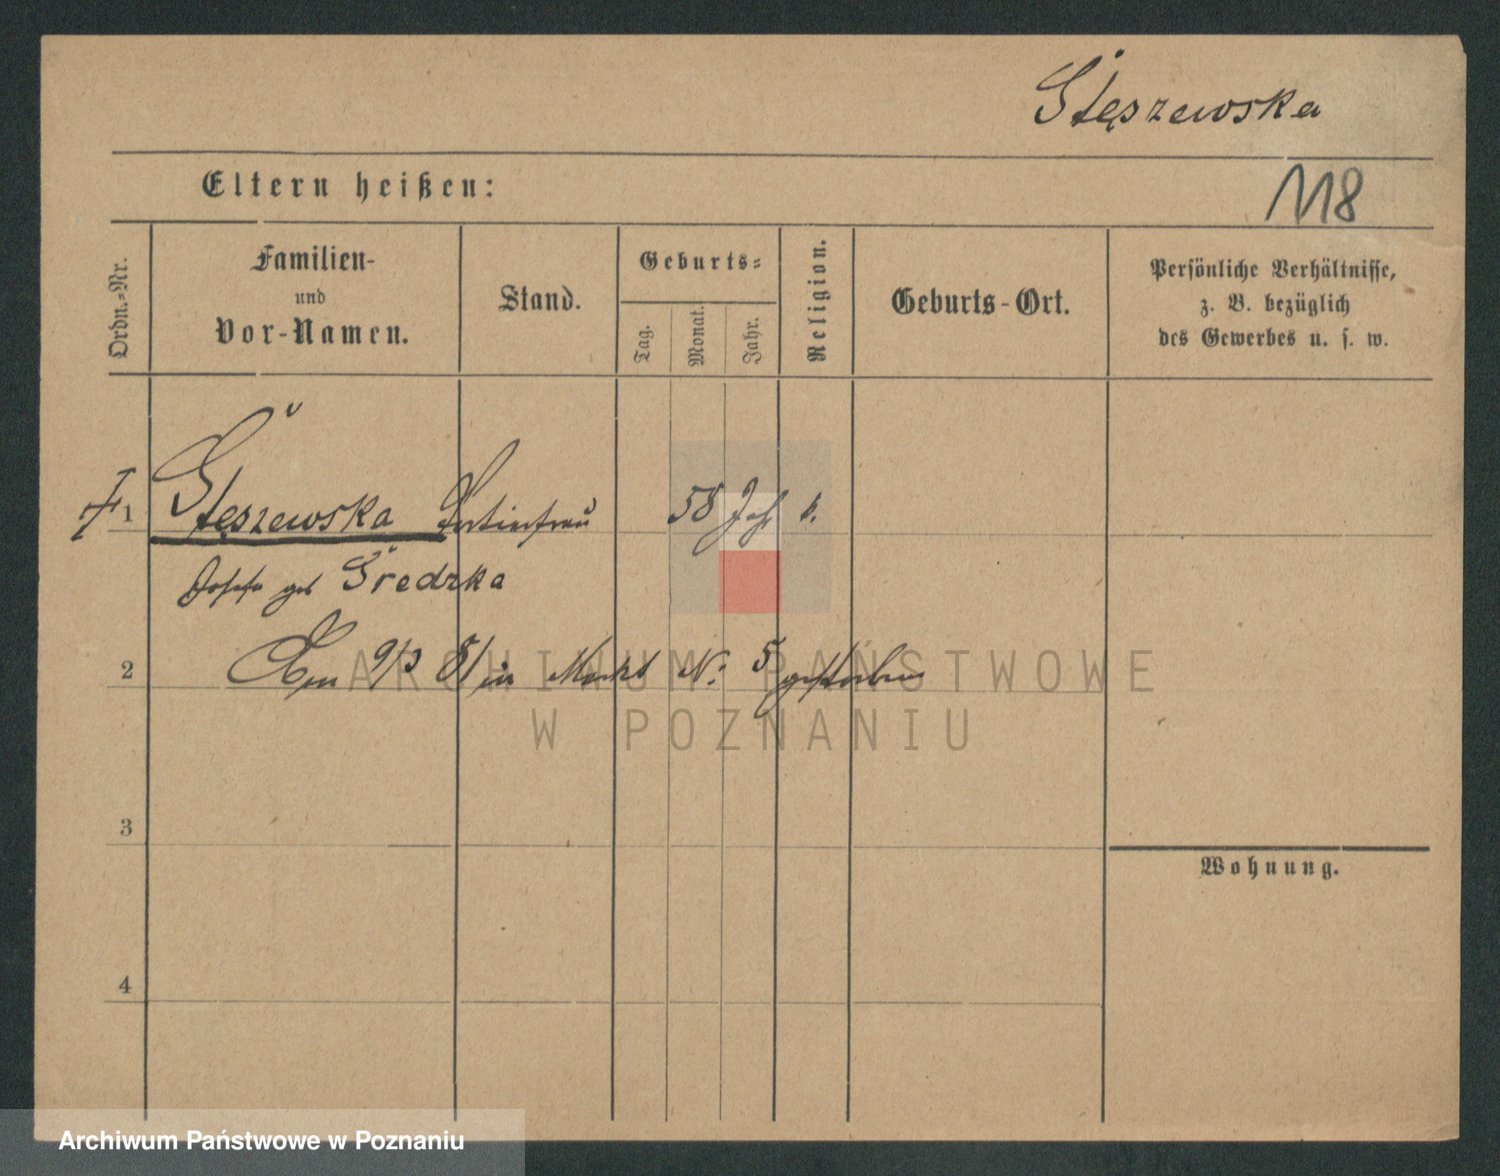 Stęszewska
Eltern heißen:
118
Ordn.-Nr.
Familien-
und
Vor-Namen.
Stand.
Geburts-
Tag.
Monat.
Jahr.
Religion.
Geburts-Ort.
Persönliche Verhältnisse,
z. B. bezüglich
des Gewerbes u. s. w.
1 Stęszewska 58 Jah k.
Josefa geb Średzka
2 Am 9/3 81 in Markt No. 5 gestorben
3
Wohnung.
4
ARCHIWUM PAŃSTWOWE
W POZNANIU
Archiwum Państwowe w Poznaniu